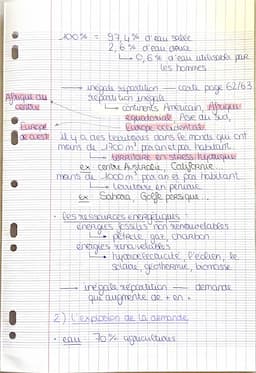 100% = 97,4% d'eau salée
2,6% d'eau douce
↳ 0,6% d'eau utilisable par
les hommes
→ inégale répartition — carte page 62/63
répartition inégale
Afrique du
centre
↳ continents Américain, Afrique
équatoriale, Asie du Sud,
Europe
de ouest
Europe occidentale
il y a des territoires dans le monde qui ont
moins de 1700 m³ par an et par habitant
↳ territoire en stress hydrique
ex centre Australie, Californie
moins de 1000 m³ par an et par habitant
↳ territoire en pénurie
ex Sahara, Golfe persique...
• Les ressources énergétiques :
énergies fossiles non renouvelables
↳ pétrole, gaz, charbon
énergies renouvelables
↳ hydroélectricité, l'éolien, le
solaire, géothermie, biomasse
→ inégale répartition — demande
qui augmente de + en +
2) L'explosion de la demande
• eau 70% agriculture